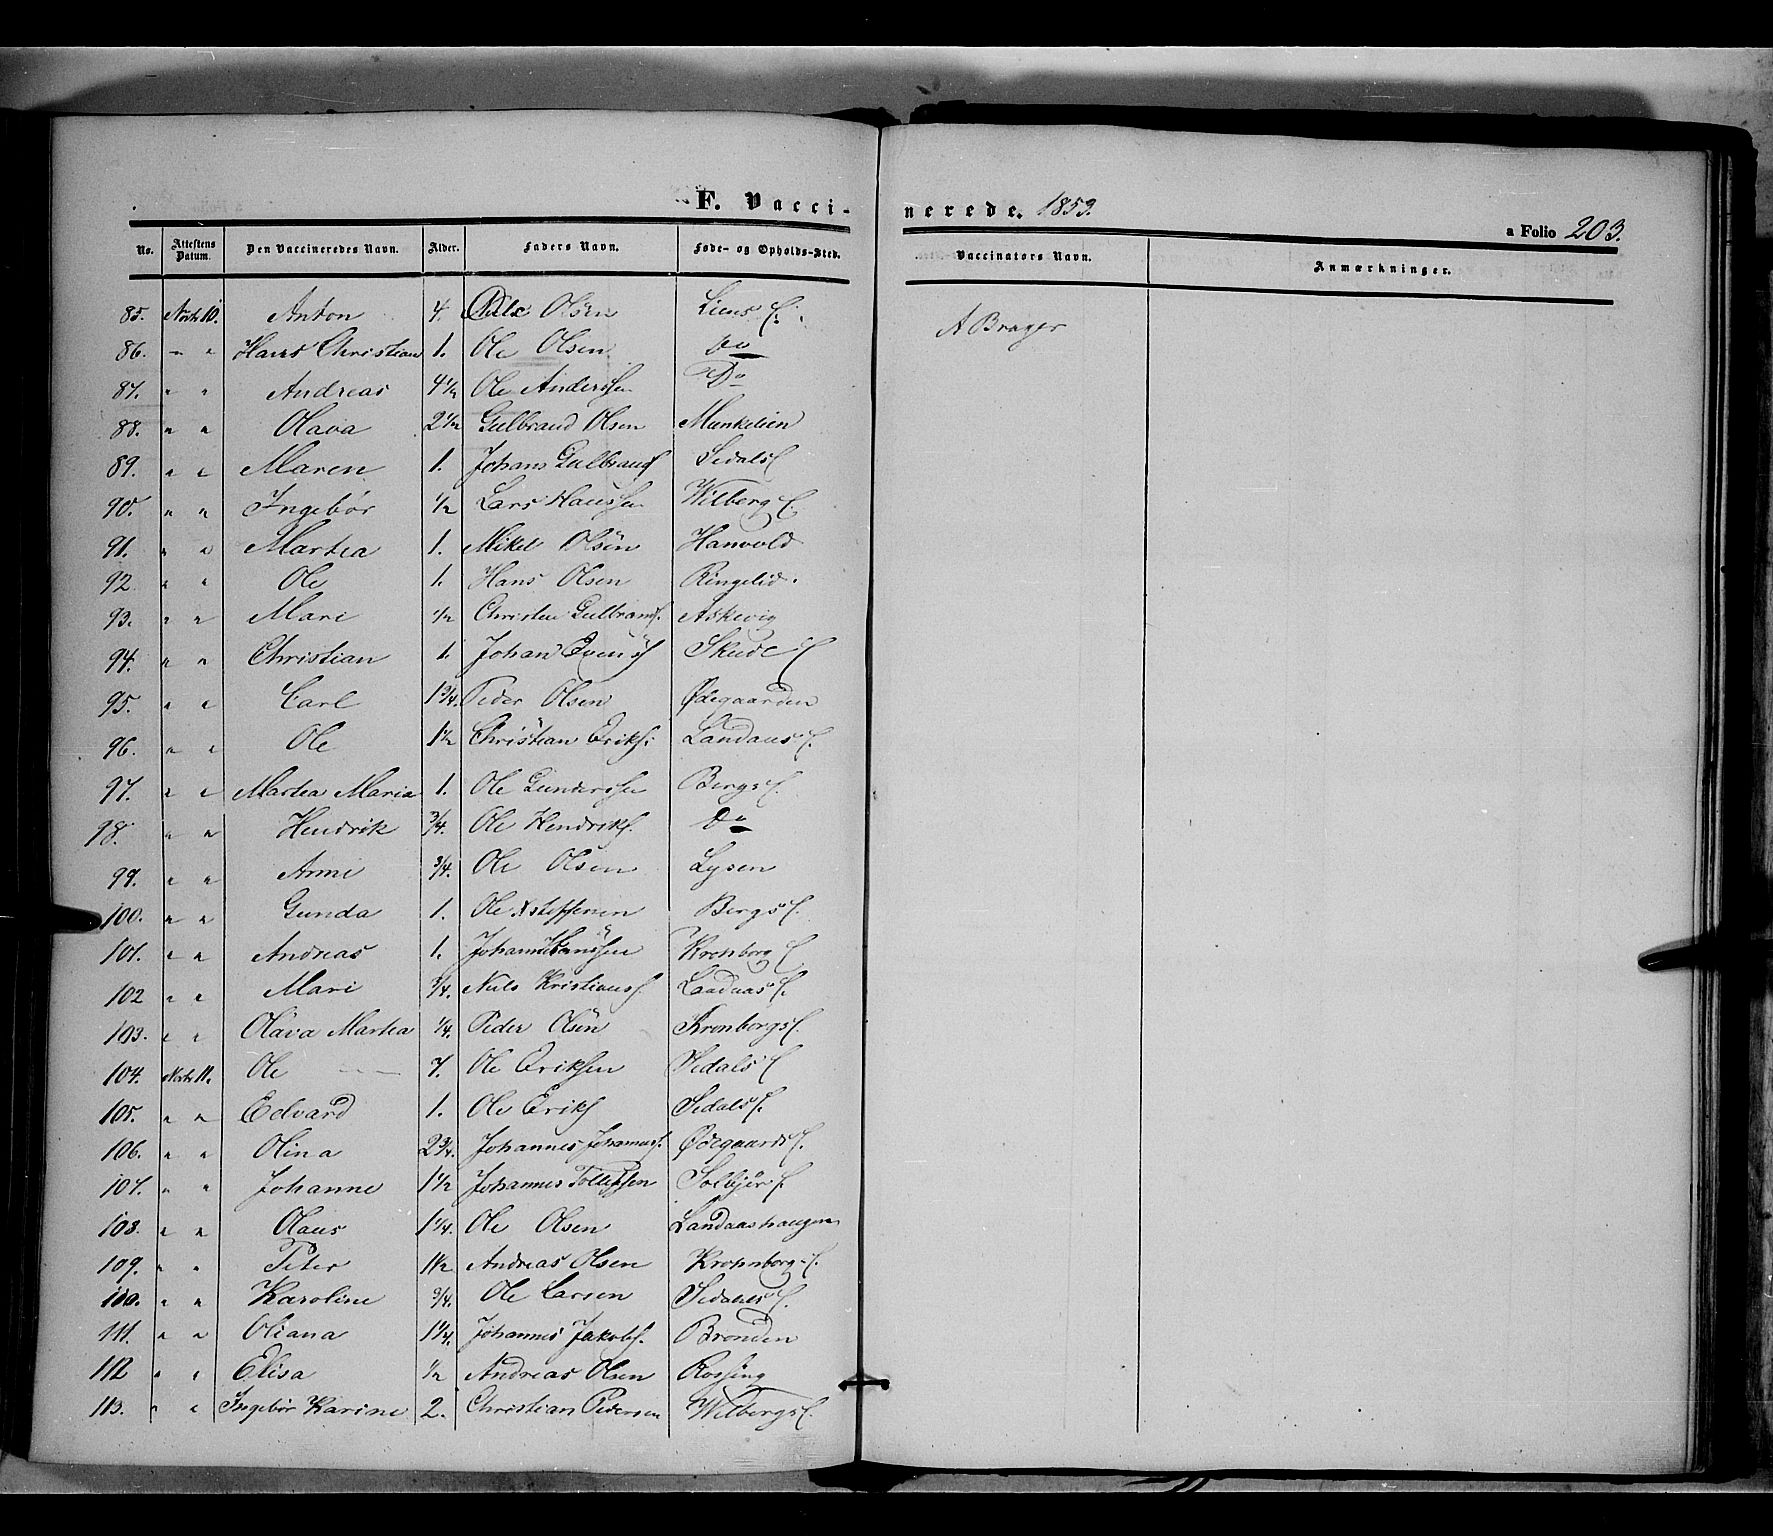 F. Vacci-
nerede. 1859.
a Folio 203.
No. Attestens Datum. Den Vaccineredes Navn. Alder. Faders Navn. Føde- og Opholds-Sted. Vaccinators Navn. Anmærkninger.
85. 10. Anton 4. Olsen Liens E. A Brager
86. " " Hans Christian 1. Ole Olsen Do
87. " " Andreas 4 1/2 Ole Anderssen Do
88. " " Olava 2 1/2 Gulbrand Olsen Munkelien
89. " " Maren 1. Johans Gulbrands Sedals E
90. " " Ingebor 1/2 Lars Hanssen Wilberg E.
91. " " Martea 1. Mikel Olsen Hanvold
92 " " Ole 1. Hans Olsen Ringelid.
93. " " Mari 1/2 Christen Gulbrands. Askevig
94. " " Christian 1. Johan Evens Skude E
95. " " Carl 1 3/4. Peder Olsen Ødegaarden
96. " " Ole 1 1/2 Christian Eriks: Landaas E.
97. " " Martea Maria 1. Ole Gunderssen Bergs E.
98. " " Hendrik 3/4. Ole Hendriks. Do
99. " " Anne 3/4. Ole Olsen Lysen
100. " " Gunda 1. Ole Bergs E.
101. " " Andreas 1. Kronborg E
102 " " Mari 3/4. Nils Kristians. Landaas E.
103. " " Olava Martea 1/4. Peder Olsen Kronborgs E.
104. 11. Ole 7. Ole Eriksen Sedals E
105. " " Edvard 1. Ole Eriks Sedals E.
106. " " Olina 2 3/4. Johannes Johanness. Ødegaards E.
107. " " Johanne 1 1/2 Johannes Tollefsen Solbjør E.
108. " " Olaus 1 1/4. Ole Olsen Landaashaugen
109. " " Peter 1 1/2 Andreas Olsen Kronborg E.
110. " " Karoline 3/4. Ole Larsen Sedahls E.
111. " " Oliana 1 1/4. Johannes Jakobs. Brenden
112 " " Elisa 1/2 Andreas Olsen Rossing
113. " " Ingebor Karine 2. Christian Pedersen Wilbergs E.